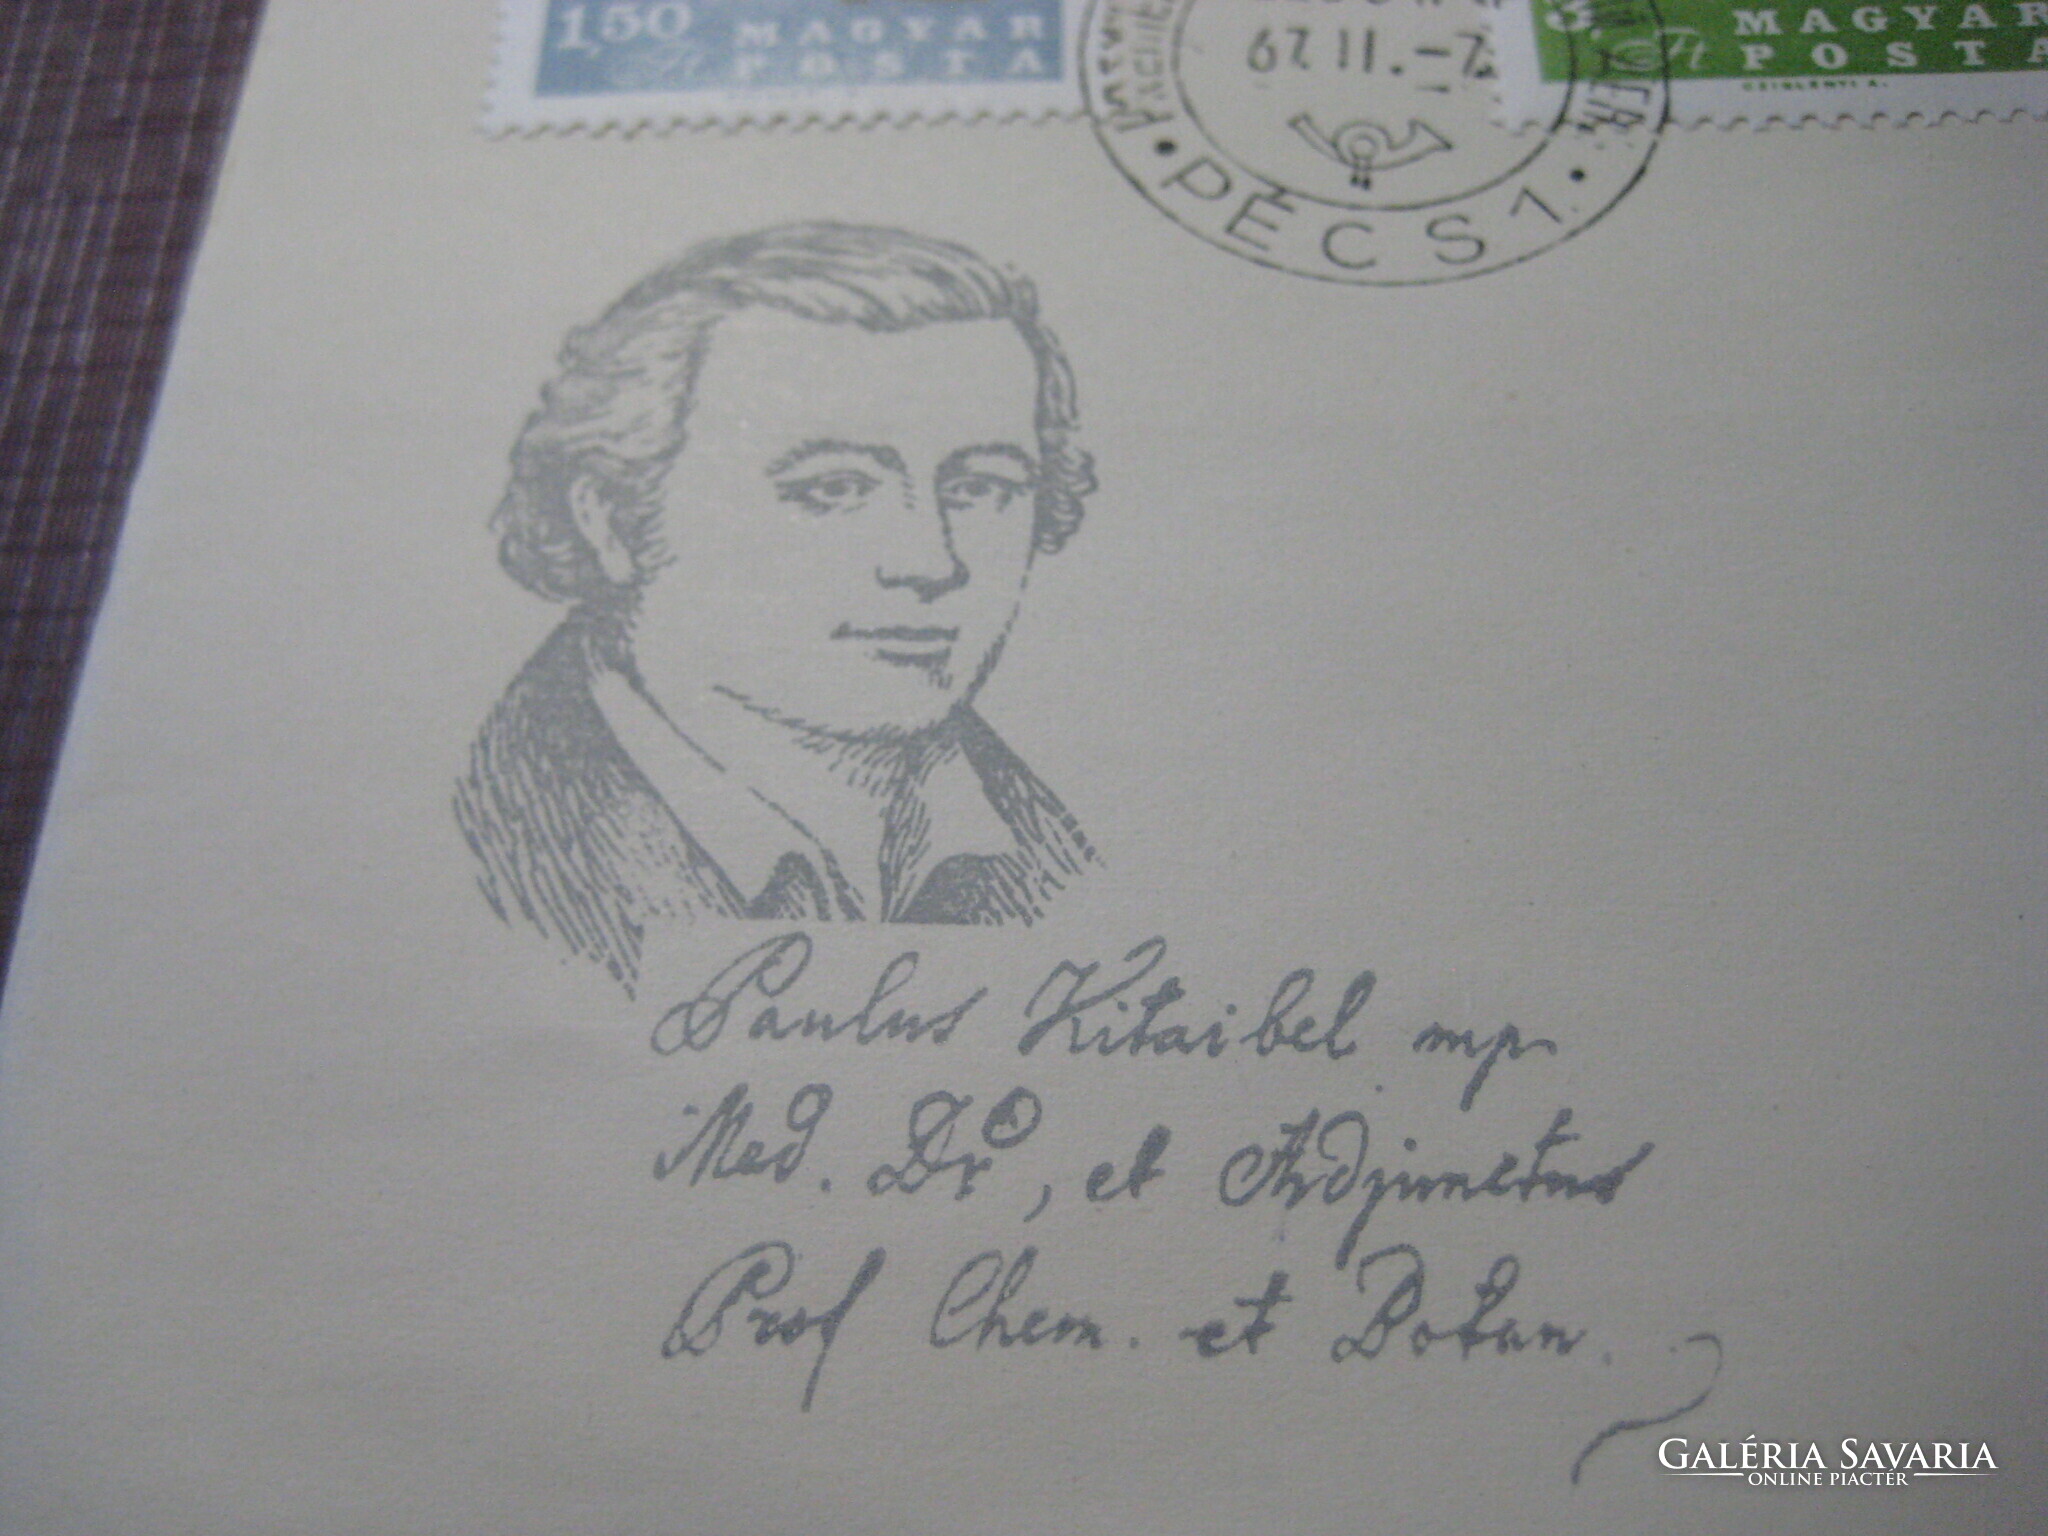 1,50 Ft MAGYAR
POSTA
Ft MAGYAR
POSTA
CZIGLÉNYI A.
67 II.-7.
• PÉCS 1 •
Paulus Kitaibel mp
Med. Dr, et Adjunctus
Prof Chem. et Botan.
GALÉRIA SAVARIA
ONLINE PIACTÉR